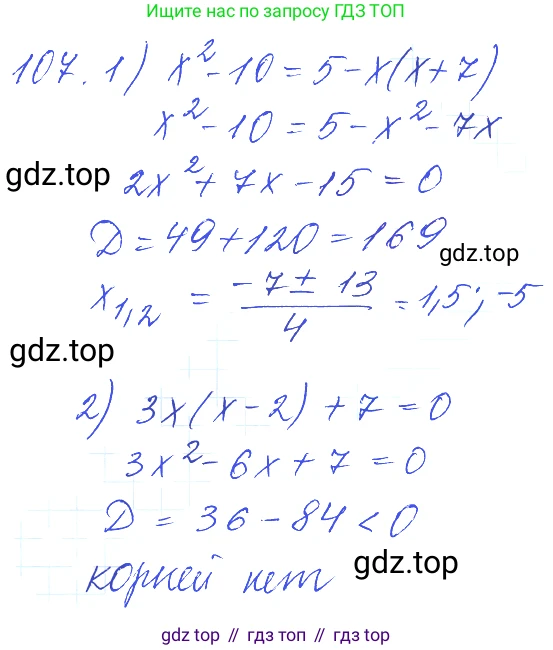 Ищите нас по запросу ГДЗ ТОП
107. 1) x² - 10 = 5 - x(x + 7)
x² - 10 = 5 - x² - 7x
gdz.top
2x² + 7x - 15 = 0
D = 49 + 120 = 169
gdz.top
x₁,₂ = (-7 ± 13)/4 = 1,5; -5
gdz.top
2) 3x(x - 2) + 7 = 0
3x² - 6x + 7 = 0
D = 36 - 84 < 0
gdz.top
корней нет
gdz top // гдз топ // гдз top